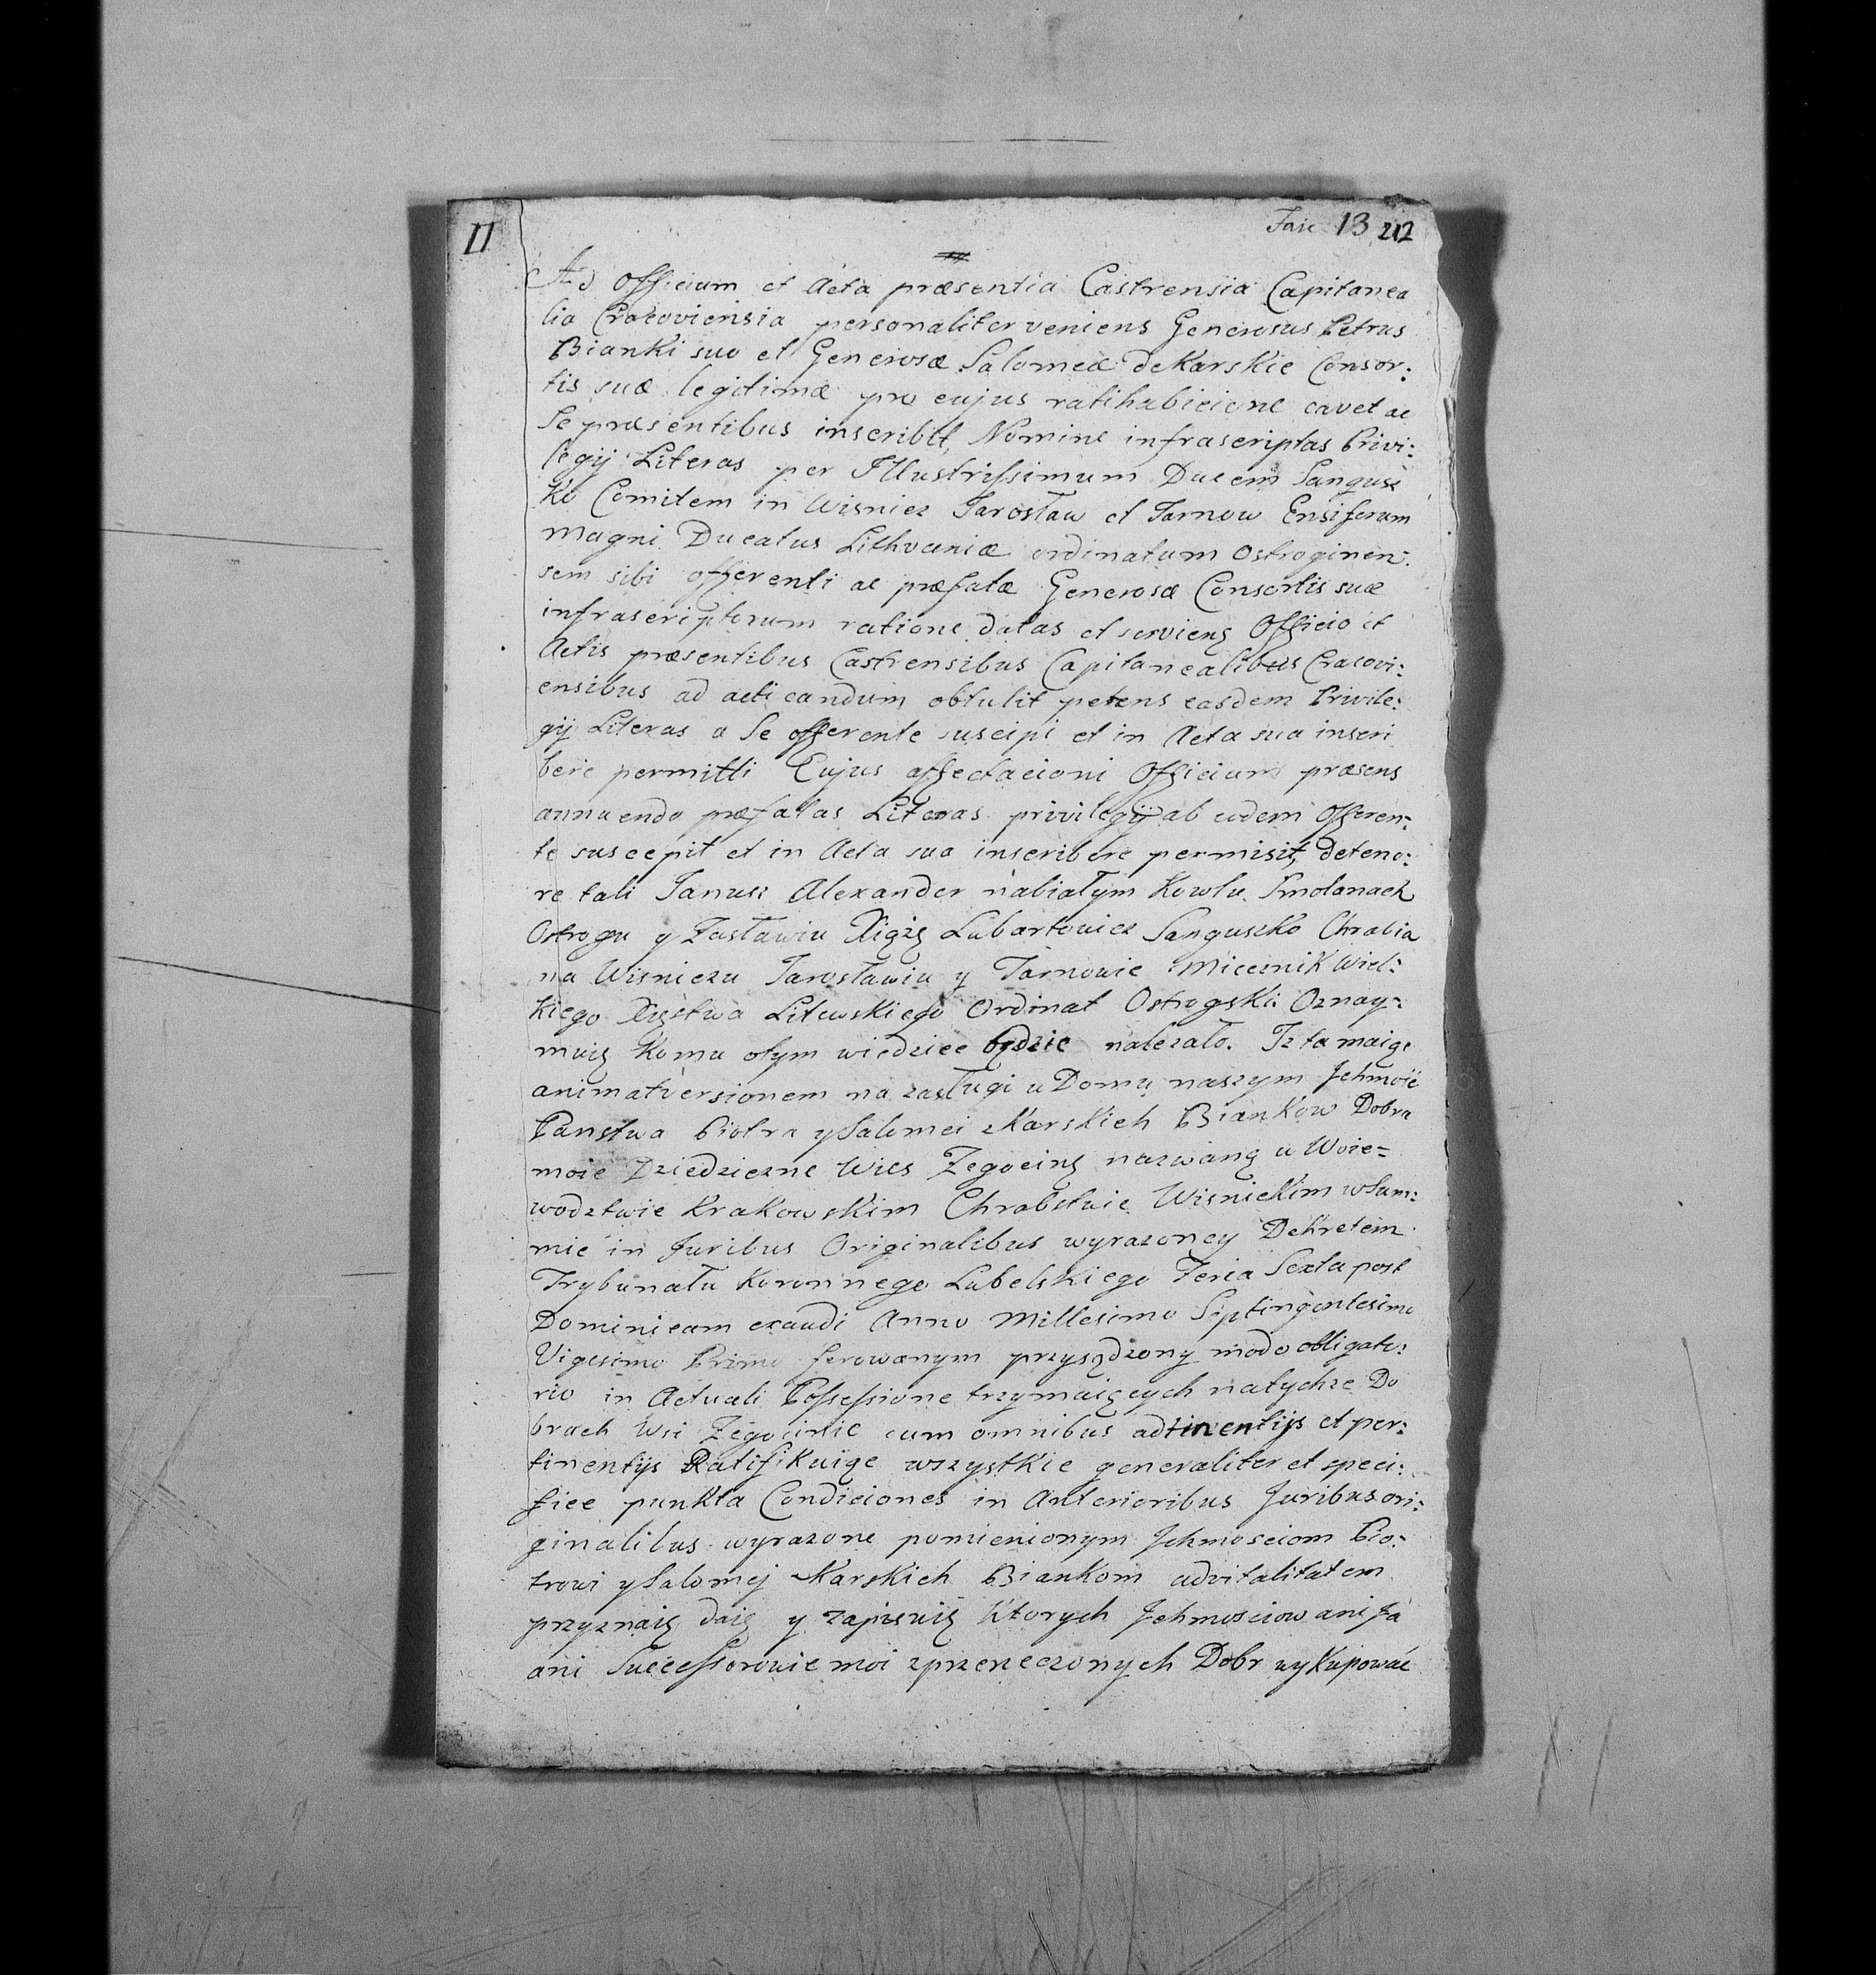 II
Fasc 13 212
Ad Officium et Acta præsentia Castrensia Capitanea
lia Cracoviensia personaliter veniens Generosus Petrus
Bianki suo et Generosæ Salomeæ de Karskie Consor:
tis suæ legitimæ pro cujus ratihabicione cavet ac
Se præsentibus inscribit, Nomine infrascriptas Privi:
legij Literas per Illustrissimum Ducem Sangus
ko Comitem in Wisnicz Jarosław et Tarnow Ensiferum
Magni Ducatus Lithvaniæ ordinatum Ostroginen:
sem sibi offerenti ac præfatæ Generosæ Consortis suæ
infrascriptorum ratione datas et serviens Officio et
Actis præsentibus Castrensibus Capitanealibus Cracovi:
ensibus ad acticandum obtulit petens easdem Privile:
gij Literas a Se offerente suscipi et in Acta sua inscri
bere permitti Cujus affectacioni Officium præsens
annuendo præfatas Literas privilegij ab eodem Offeren:
te suscepit et in Acta sua inscribere permisit, de teno:
re tali Janusz Alexander nabiałym Kowlu Smolanach
Ostrogu y Zasławiu Xiąże Lubartowicz Sanguszko Chrabia
na Wisniczu Jarosławiu y Tarnowie Miecznik Wiel:
kiego Xięstwa Litewskiego Ordinat Ostrogski Oznay:
muię Komu otym wiedziec będzie nalezało. Iz ta maiąc
animatversionem na zasługi u Domu naszym Jchmoić
Panstwa Piotra y Salomei zKarskich Biankow Dobra
moie Dziedziczne Wies Zegocinę nazwaną u Woie=
wodztwie Krakowskim Chrabstwie Wisnickim wSum:
mie in Juribus Originalibus wyrazoney Dekretem
Trybunału Koronnego Lubelskiego Feria Sexta post
Dominicam exaudi Anno Millesimo Septingentesimo
Vigesimo Primo ferowanym przysądzony modo obligato:
rio in Actuali Possessione trzymaiących natychze Do
brach Wsi Zegocinie cum omnibus adtinentijs et per:
tinentijs Ratifikuiąc wszystkie generaliter et speci:
fice punkta Condiciones in Anterioribus Juribus ori:
ginalibus wyrazone pomienionym Jchmosciom Pio:
trowi y Salomej zKarskich Biankom advitalitatem
przyznaię daię y zapisuię Ktorych Jchmosciow ani Ja
ani Successorowie moi zprzerzeczonych Dobr wykupować